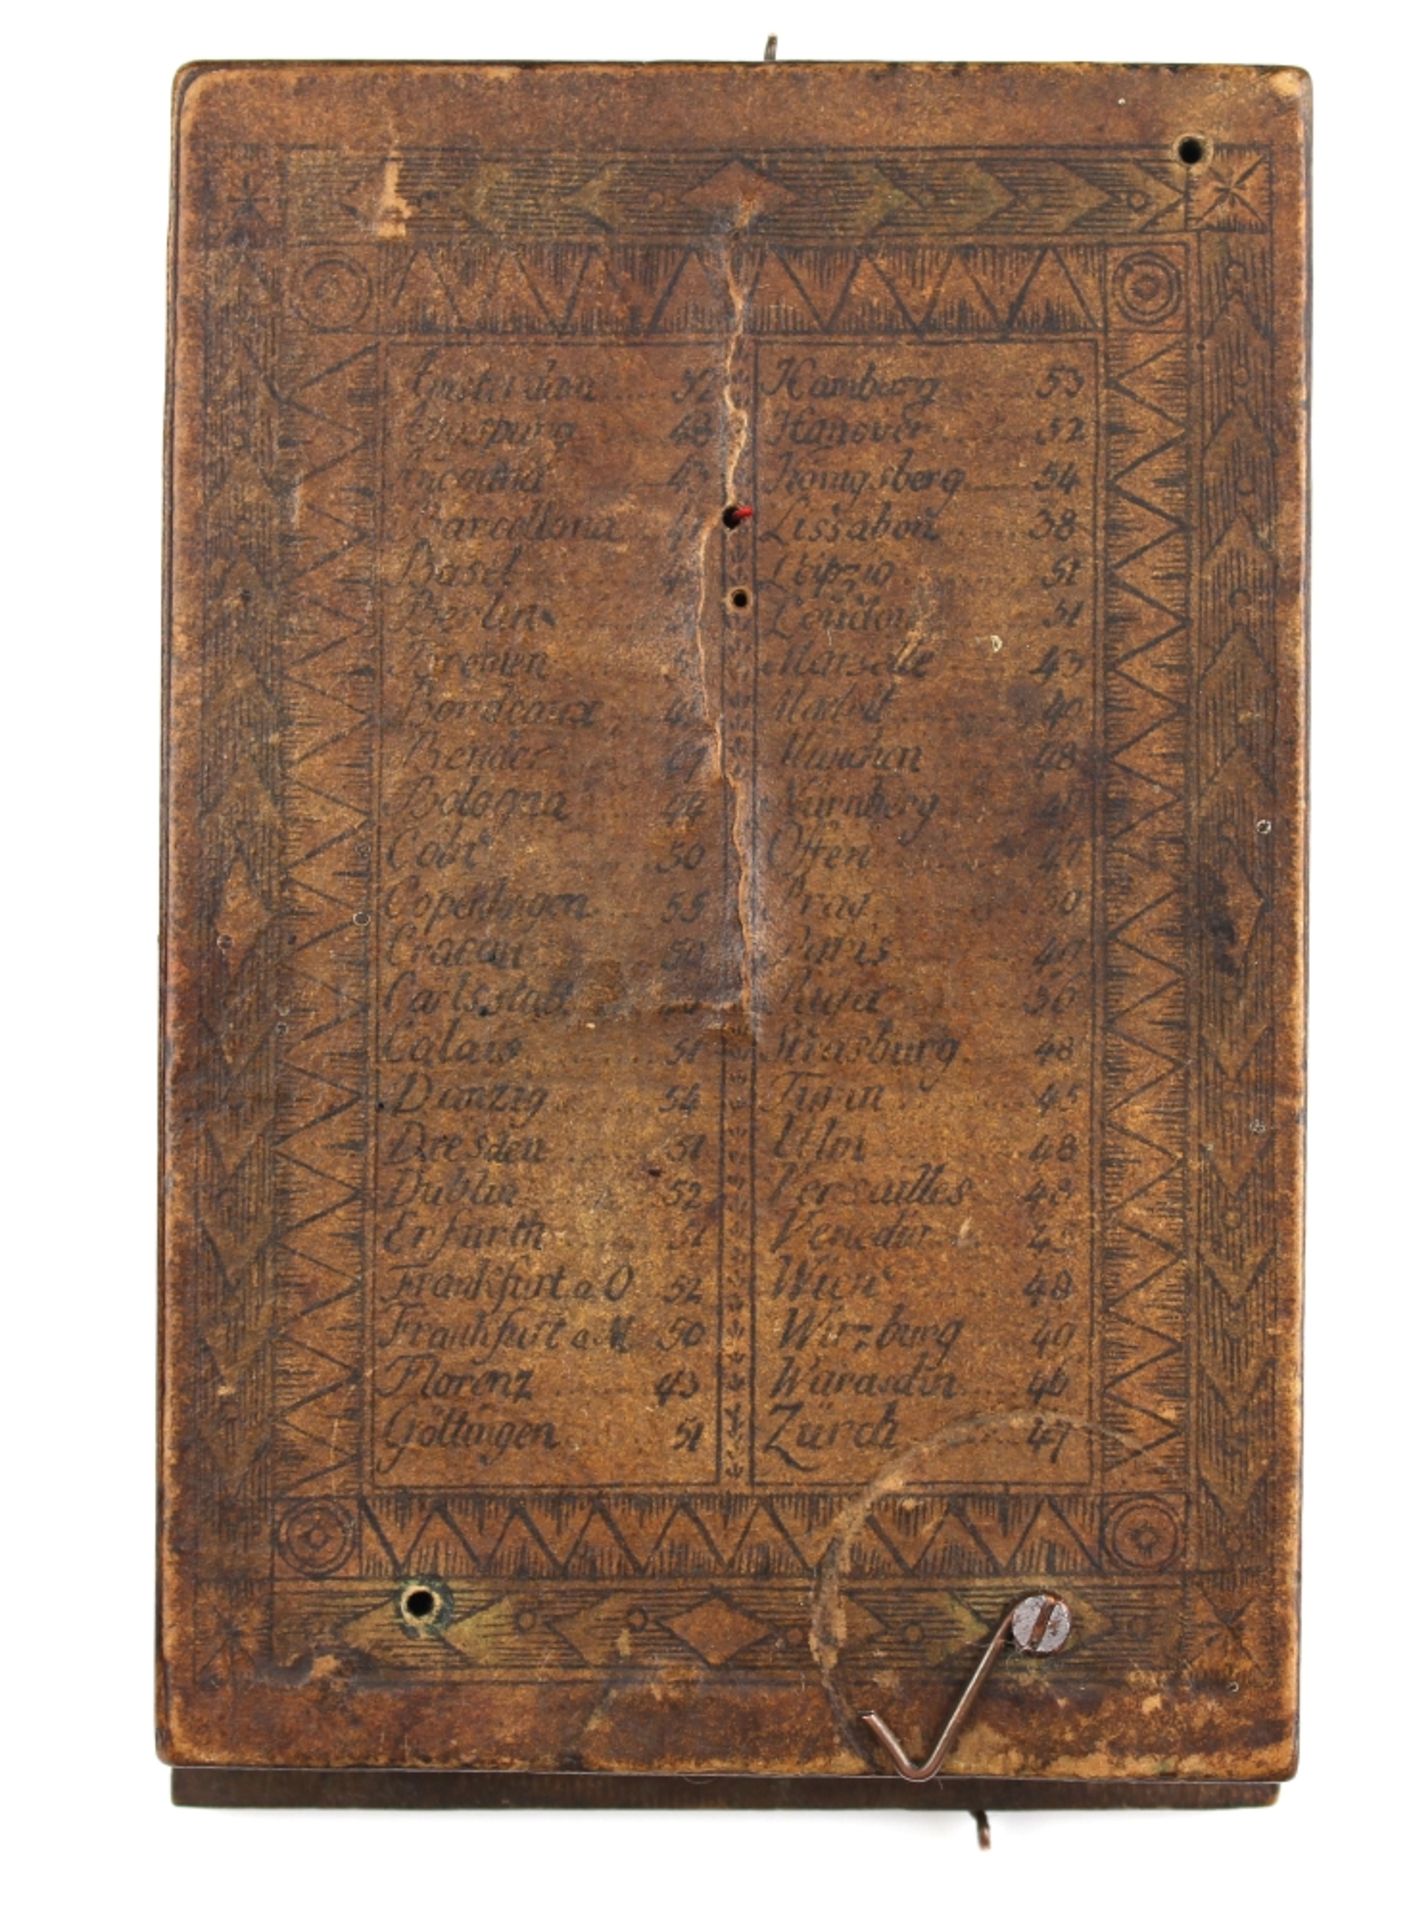 Amsterdam 52
Augspurg 48
Ancona 43
Barcellona
Basel
Berlin
Bremen
Bourdeaux
Bender
Bologna 44
50
Copenhagen 55
Cracau 50
Carlsstatt
Calais 51
Danzig 54
Dresden 51
Dublin 52
Erfurth 51
Frankfurt a O 52
Frankfurt a M 50
Florenz 43
Göttingen 51
Hamburg 53
Hanover 52
Königsberg 54
Lissabon 38
Leipzig 51
London 51
Marselle 43
40
München 48
Nürnberg
Offen 47
Prag 50
Paris
Riga 56
Strasburg 48
Turin 45
Ulm 48
Versailles 48
Venedig 45
Wien 48
Wirzburg 49
Warasdin 46
Zürch 47